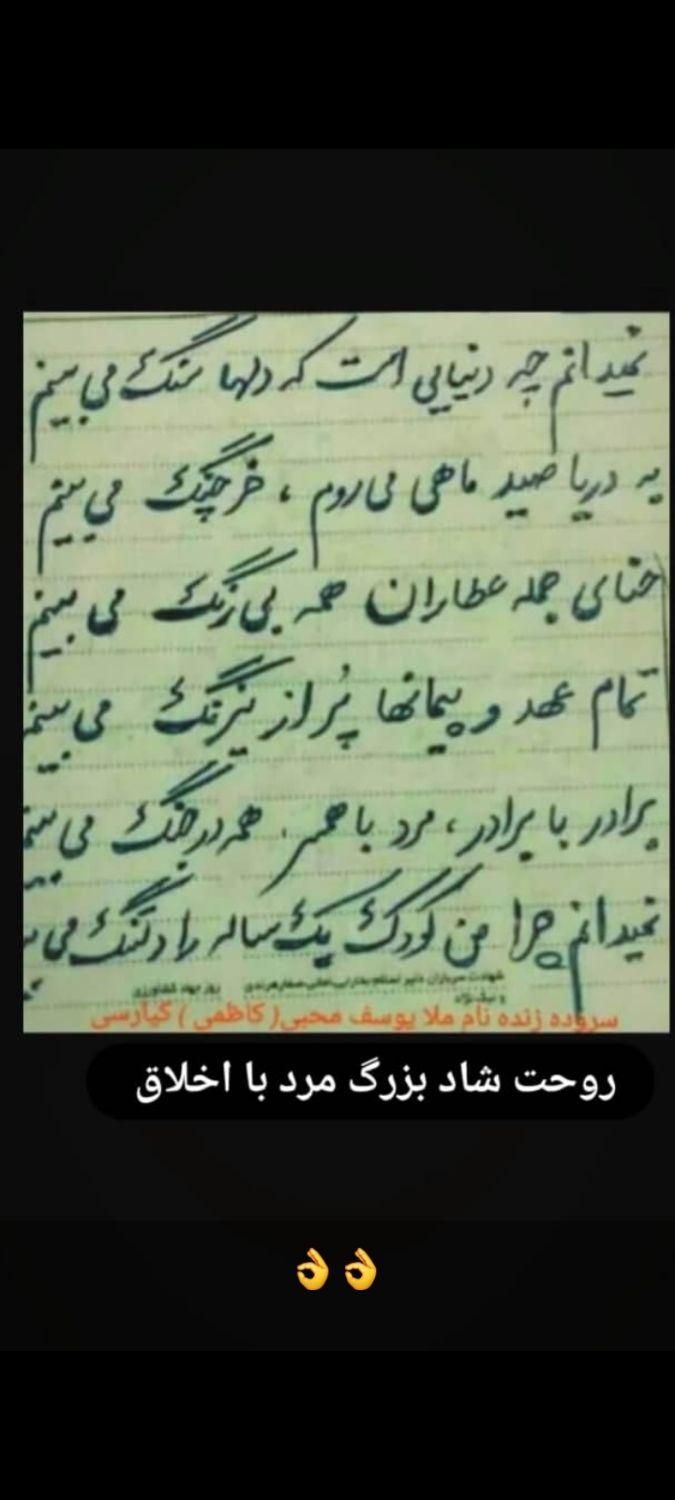 نمیدانم چه دنیایی است که دلها سنگ می بینم
به دریا صید ماهی می روم ، خرچنگ می بینم
حنای جمله عطاران همه بی رنگ می بینم
تمام عهد و پیمانها پُر از نیرنگ می بینم
برادر با برادر ، مرد با همسر همه در جنگ می بینم
نمیدانم چرا من کودک یک ساله را دلتنگ می
شهادت سربازان دلیر اسلام روز جهاد کشاورزی
و نیک نژاد
سروده زنده نام ملا یوسف محبی( کاظمی ) گیارسی
روحت شاد بزرگ مرد با اخلاق
👌👌